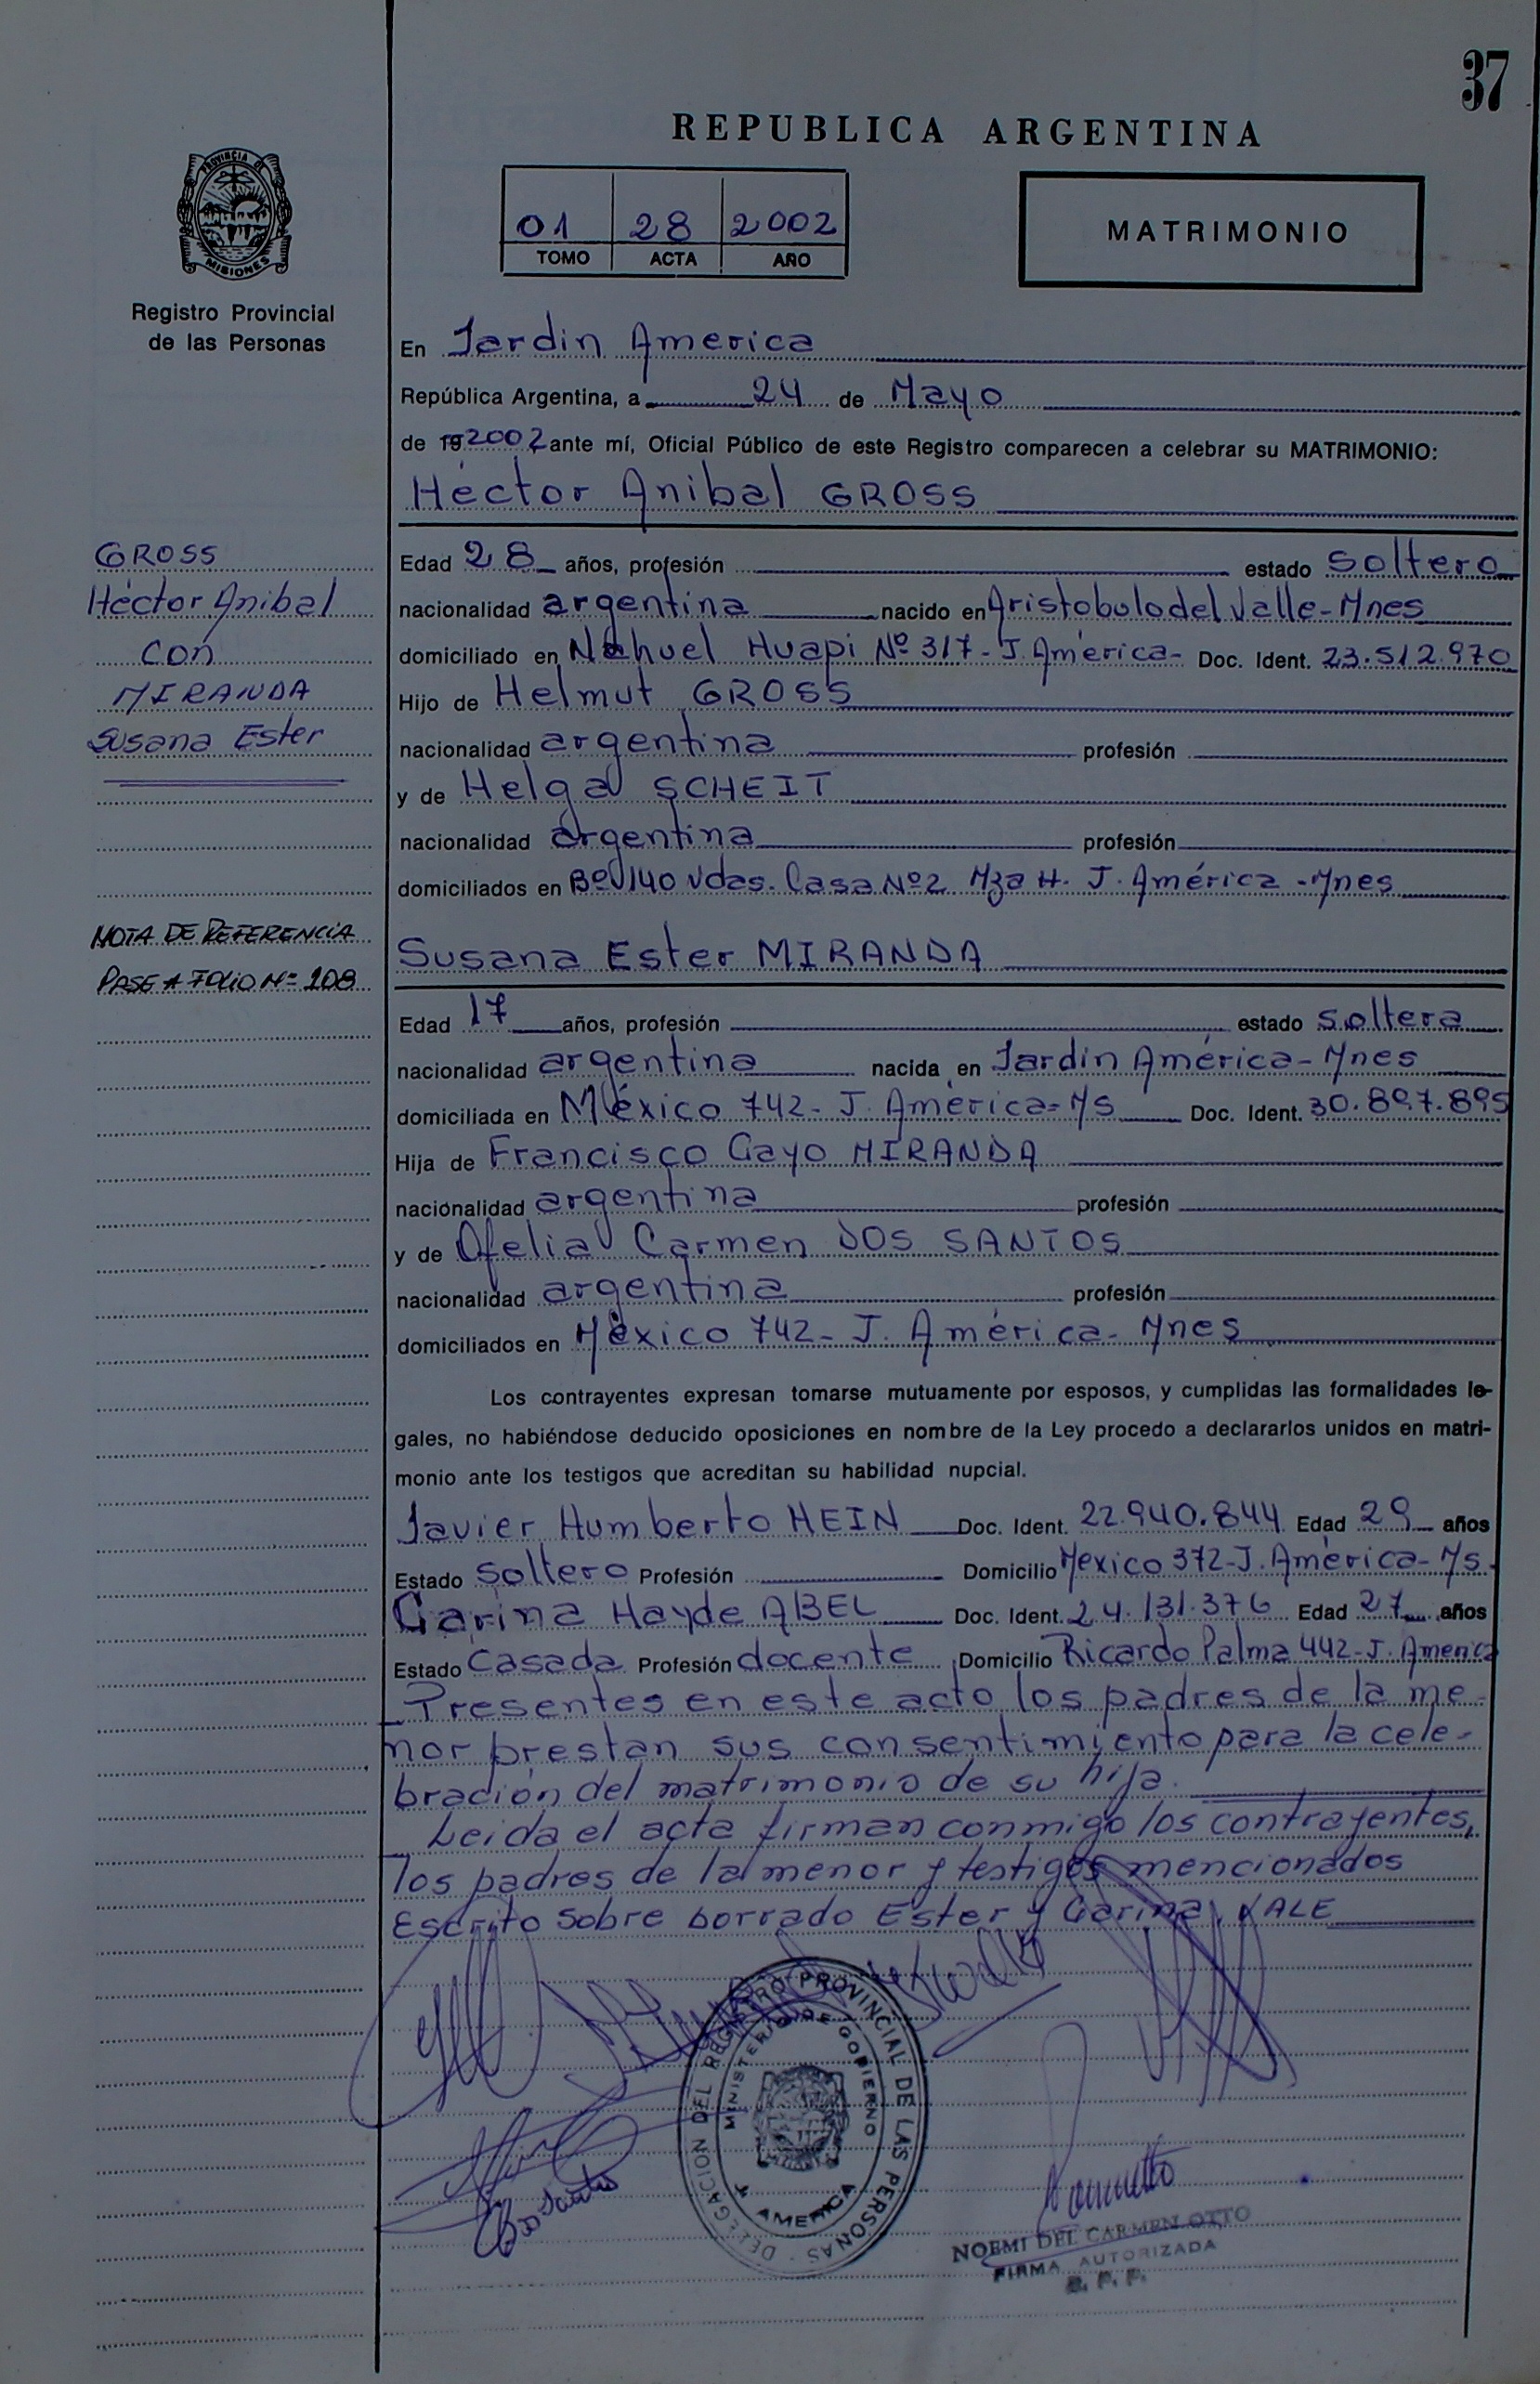 37
REPUBLICA ARGENTINA
PROVINCIA DE
MISIONES
Registro Provincial
de las Personas
01 28 2002
TOMO ACTA AÑO
MATRIMONIO
En Jardin America
República Argentina, a 24 de Mayo
de 19 2002 ante mí, Oficial Público de este Registro comparecen a celebrar su MATRIMONIO:
Héctor Anibal GROSS
GROSS
Héctor Anibal
con
MIRANDA
Susana Ester
Edad 28 años, profesión estado soltero
nacionalidad argentina nacido en Aristobulo del Valle-Mnes
domiciliado en Nahuel Huapi Nº 317- J. América- Doc. Ident. 23.512.970
Hijo de Helmut GROSS
nacionalidad argentina profesión
y de Helga SCHEIT
nacionalidad argentina profesión
domiciliados en Bº 140 Vdas. Casa Nº2 Mza H. J. América -Mnes
NOTA DE REFERENCIA
PASE A FOLIO Nº 108
Susana Ester MIRANDA
Edad 17 años, profesión estado soltera
nacionalidad argentina nacida en Jardin América-Mnes
domiciliada en México 742- J. América-Ms Doc. Ident. 30.897.895
Hija de Francisco Gayo MIRANDA
nacionalidad argentina profesión
y de Ofelia Carmen DOS SANTOS
nacionalidad argentina profesión
domiciliados en México 742- J. América- Mnes
Los contrayentes expresan tomarse mutuamente por esposos, y cumplidas las formalidades le-
gales, no habiéndose deducido oposiciones en nombre de la Ley procedo a declararlos unidos en matri-
monio ante los testigos que acreditan su habilidad nupcial.
Javier Humberto HEIN Doc. Ident. 22.940.844 Edad 29 años
Estado soltero Profesión Domicilio Mexico 372-J. América-Ms.
Carina Hayde ABEL Doc. Ident. 24.131.376 Edad 27 años
Estado Casada Profesión docente Domicilio Ricardo Palma 442-J. America
Presentes en este acto los padres de la me-
nor prestan sus consentimiento para la cele-
bración del matrimonio de su hija.
Leida el acta firman conmigo los contrayentes,
los padres de la menor y testigos mencionados
Escrito sobre borrado Ester y Carina. VALE
DELEGACION DEL REGISTRO PROVINCIAL DE LAS PERSONAS
MINISTERIO DE GOBIERNO
J. AMERICA
NOEMI DEL CARMEN OTTO
FIRMA AUTORIZADA